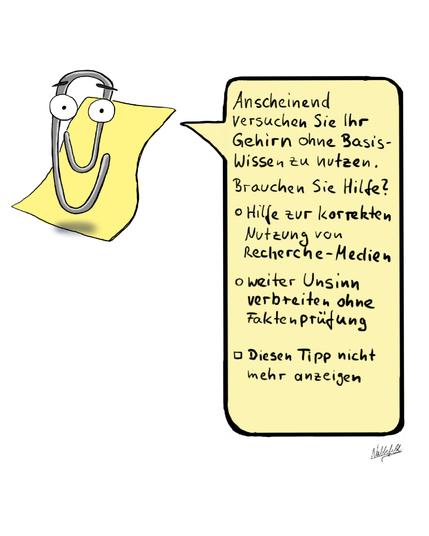 Anscheinend
versuchen Sie Ihr
Gehirn ohne Basis-
Wissen zu nutzen.
Brauchen Sie Hilfe?
Hilfe zur korrekten
Nutzung von
Recherche-Medien
weiter Unsinn
verbreiten ohne
Faktenprüfung
Diesen Tipp nicht
mehr anzeigen